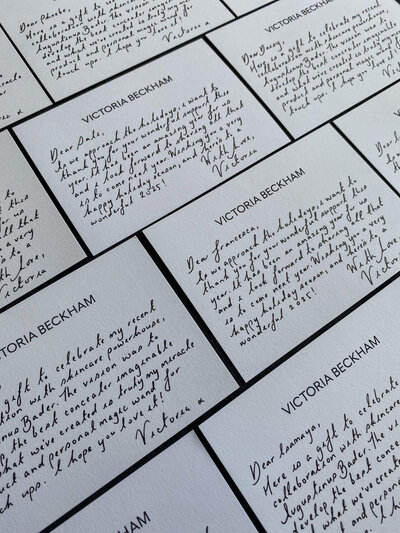 Dear Phoebe,
Here is a gift to celebrate my
collaboration with skincare
Augustinus Bader. The vision was to
develop the best concealer imaginable
and what we've created is truly my miracle
product and personal magic wand for
touch ups. I hope you love it!
Victoria x
VICTORIA BECKHAM
Here is a gift to celebrate my recent
collaboration with skincare
Augustinus Bader. The vision was to
develop the best concealer
and what we've created is
product and personal magic
touch ups. I hope you love
miracle
x
VICTORIA BECKHAM
As we approach the holidays, I want to
thank you for your wonderful support this
year. It has been an amazing year for us
and I look forward to sharing all that
is to come next year. Wishing you a very
happy holiday season, and cheers to a
wonderful 2025!
With love,
Victoria
VICTORIA BECKHAM
Dear Francesca,
As we approach the holidays, I want to
thank you for your wonderful support this
year. It has been an amazing year for us
and I look forward to sharing all that
is to come next year. Wishing you a very
happy holiday season, and cheers to a
wonderful 2025!
With love,
Victoria
to
this
us
that
very
to a
With love,
Victoria
VICTORIA
Dear
TORIA BECKHAM
a gift to celebrate my recent
ation with skincare powerhouse,
nus Bader. The vision was to
the best concealer imaginable
what we've created is truly my miracle
uct and personal magic wand for
ch ups. I hope you love it!
Victoria x
VICTORIA BECKHAM
Dear Isamaya,
Here is a gift to celebrate
collaboration with skincare
Augustinus Bader. The
develop the best con
and what we've created
product and personal
touch ups. I hope